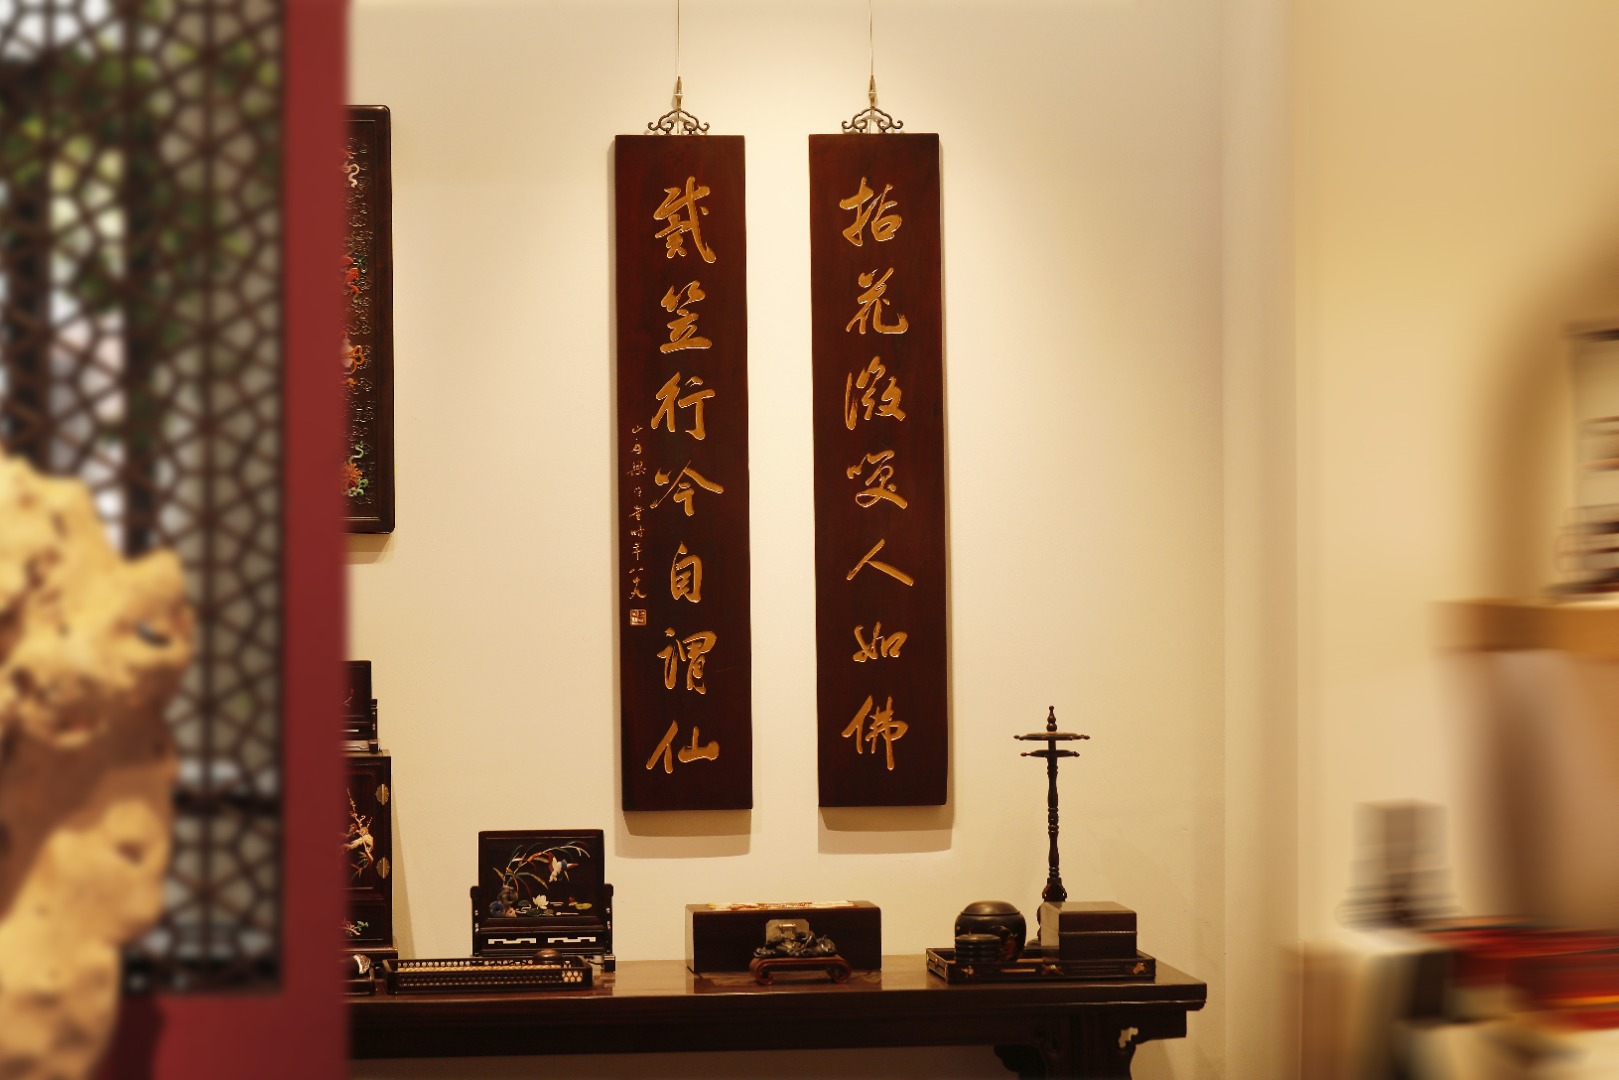 拈花微笑人如佛
戴笠行吟自谓仙